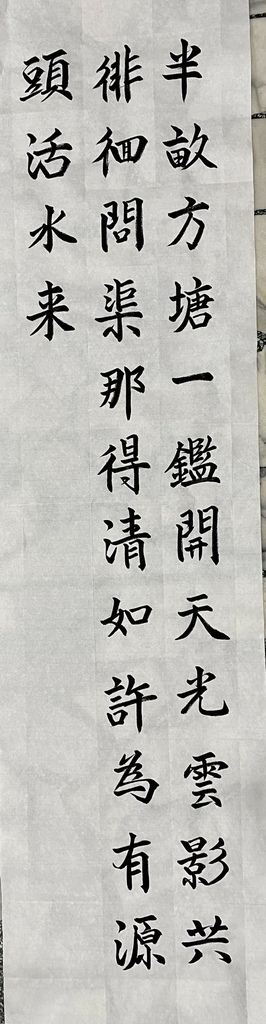 半畝方塘一鑑開天光雲影共
徘徊問渠那得清如許為有源
頭活水来